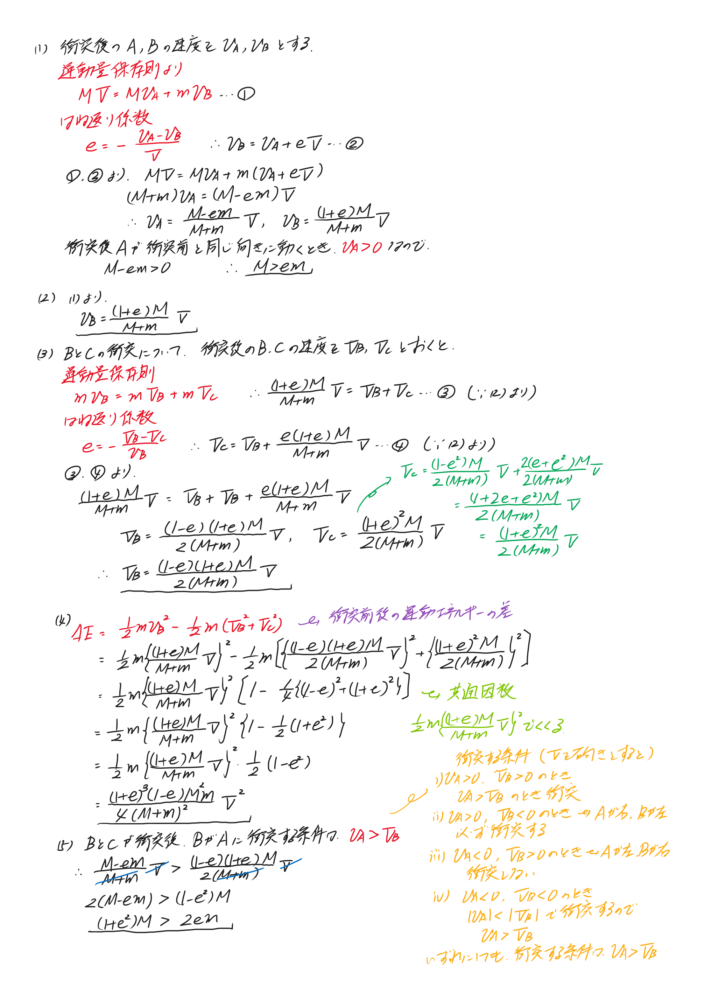 (1) 衝突後の A, B の速度を v_A, v_B とする.
運動量保存則より
MV = Mv_A + mv_B … ①
はね返り係数
e = - (v_A - v_B)/V ∴ v_B = v_A + eV … ②
①, ② より. MV = Mv_A + m(v_A + eV)
(M+m)v_A = (M-em)V
∴ v_A = (M-em)/(M+m) V, v_B = (1+e)M/(M+m) V
衝突後 A が衝突前と同じ向きに動くとき v_A>0 なので.
M-em>0 ∴ M>em
(2) (1)より.
v_B = (1+e)M/(M+m) V
(3) BとCの衝突について. 衝突後のB, Cの速度を V_B, V_C とおくと.
運動量保存則
m v_B = m V_B + m V_C ∴ (1+e)M/(M+m) V = V_B + V_C … ③ (∵ (2)より)
はね返り係数
e = - (V_B - V_C)/v_B ∴ V_C = V_B + e(1+e)M/(M+m) V … ④ (∵ (2)より)
③, ④ より.
(1+e)M/(M+m) V = V_B + V_B + e(1+e)M/(M+m) V
V_B = (1-e)(1+e)M/2(M+m) V, V_C = (1+e)²M/2(M+m) V
∴ V_B = (1-e)(1+e)M/2(M+m) V
V_C = (1-e²)M/2(M+m) V + 2(e+e²)M/2(M+m) V
= (1+2e+e²)M/2(M+m) V
= (1+e)²M/2(M+m) V
(4) ΔE = 1/2 m v_B² - 1/2 m (V_B² + V_C²) ← 衝突前後の運動エネルギーの差
= 1/2 m {(1+e)M/(M+m) V}² - 1/2 m [{(1-e)(1+e)M/2(M+m) V}² + {(1+e)²M/2(M+m)}²]
= 1/2 m {(1+e)M/(M+m) V}² [1 - 1/4 {(1-e)² + (1+e)²}] ← 共通因数
1/2 m {(1+e)M/(M+m) V}² でくくる
= 1/2 m {(1+e)M/(M+m) V}² {1 - 1/2 (1+e²)}
= 1/2 m {(1+e)M/(M+m) V}² · 1/2 (1-e²)
= (1+e)³(1-e)M²m/4(M+m)² V²
(5) BとCが衝突後. BがAに衝突する条件は v_A > V_B
∴ (M-em)/(M+m) V > (1-e)(1+e)M/2(M+m) V
2(M-em) > (1-e²)M
(1+e²)M > 2em
衝突する条件 (Vを正の向きとすると)
i) v_A>0, V_B>0 のとき
v_A>V_B のとき衝突
ii) v_A>0, V_B<0 のとき → Aが右, Bが左
必ず衝突する
iii) v_A<0, V_B>0 のとき → Aが左, Bが右
衝突しない
iv) v_A<0, V_B<0 のとき
|v_A|<|V_B| で衝突するので
v_A>V_B
いずれにしても. 衝突する条件は v_A>V_B